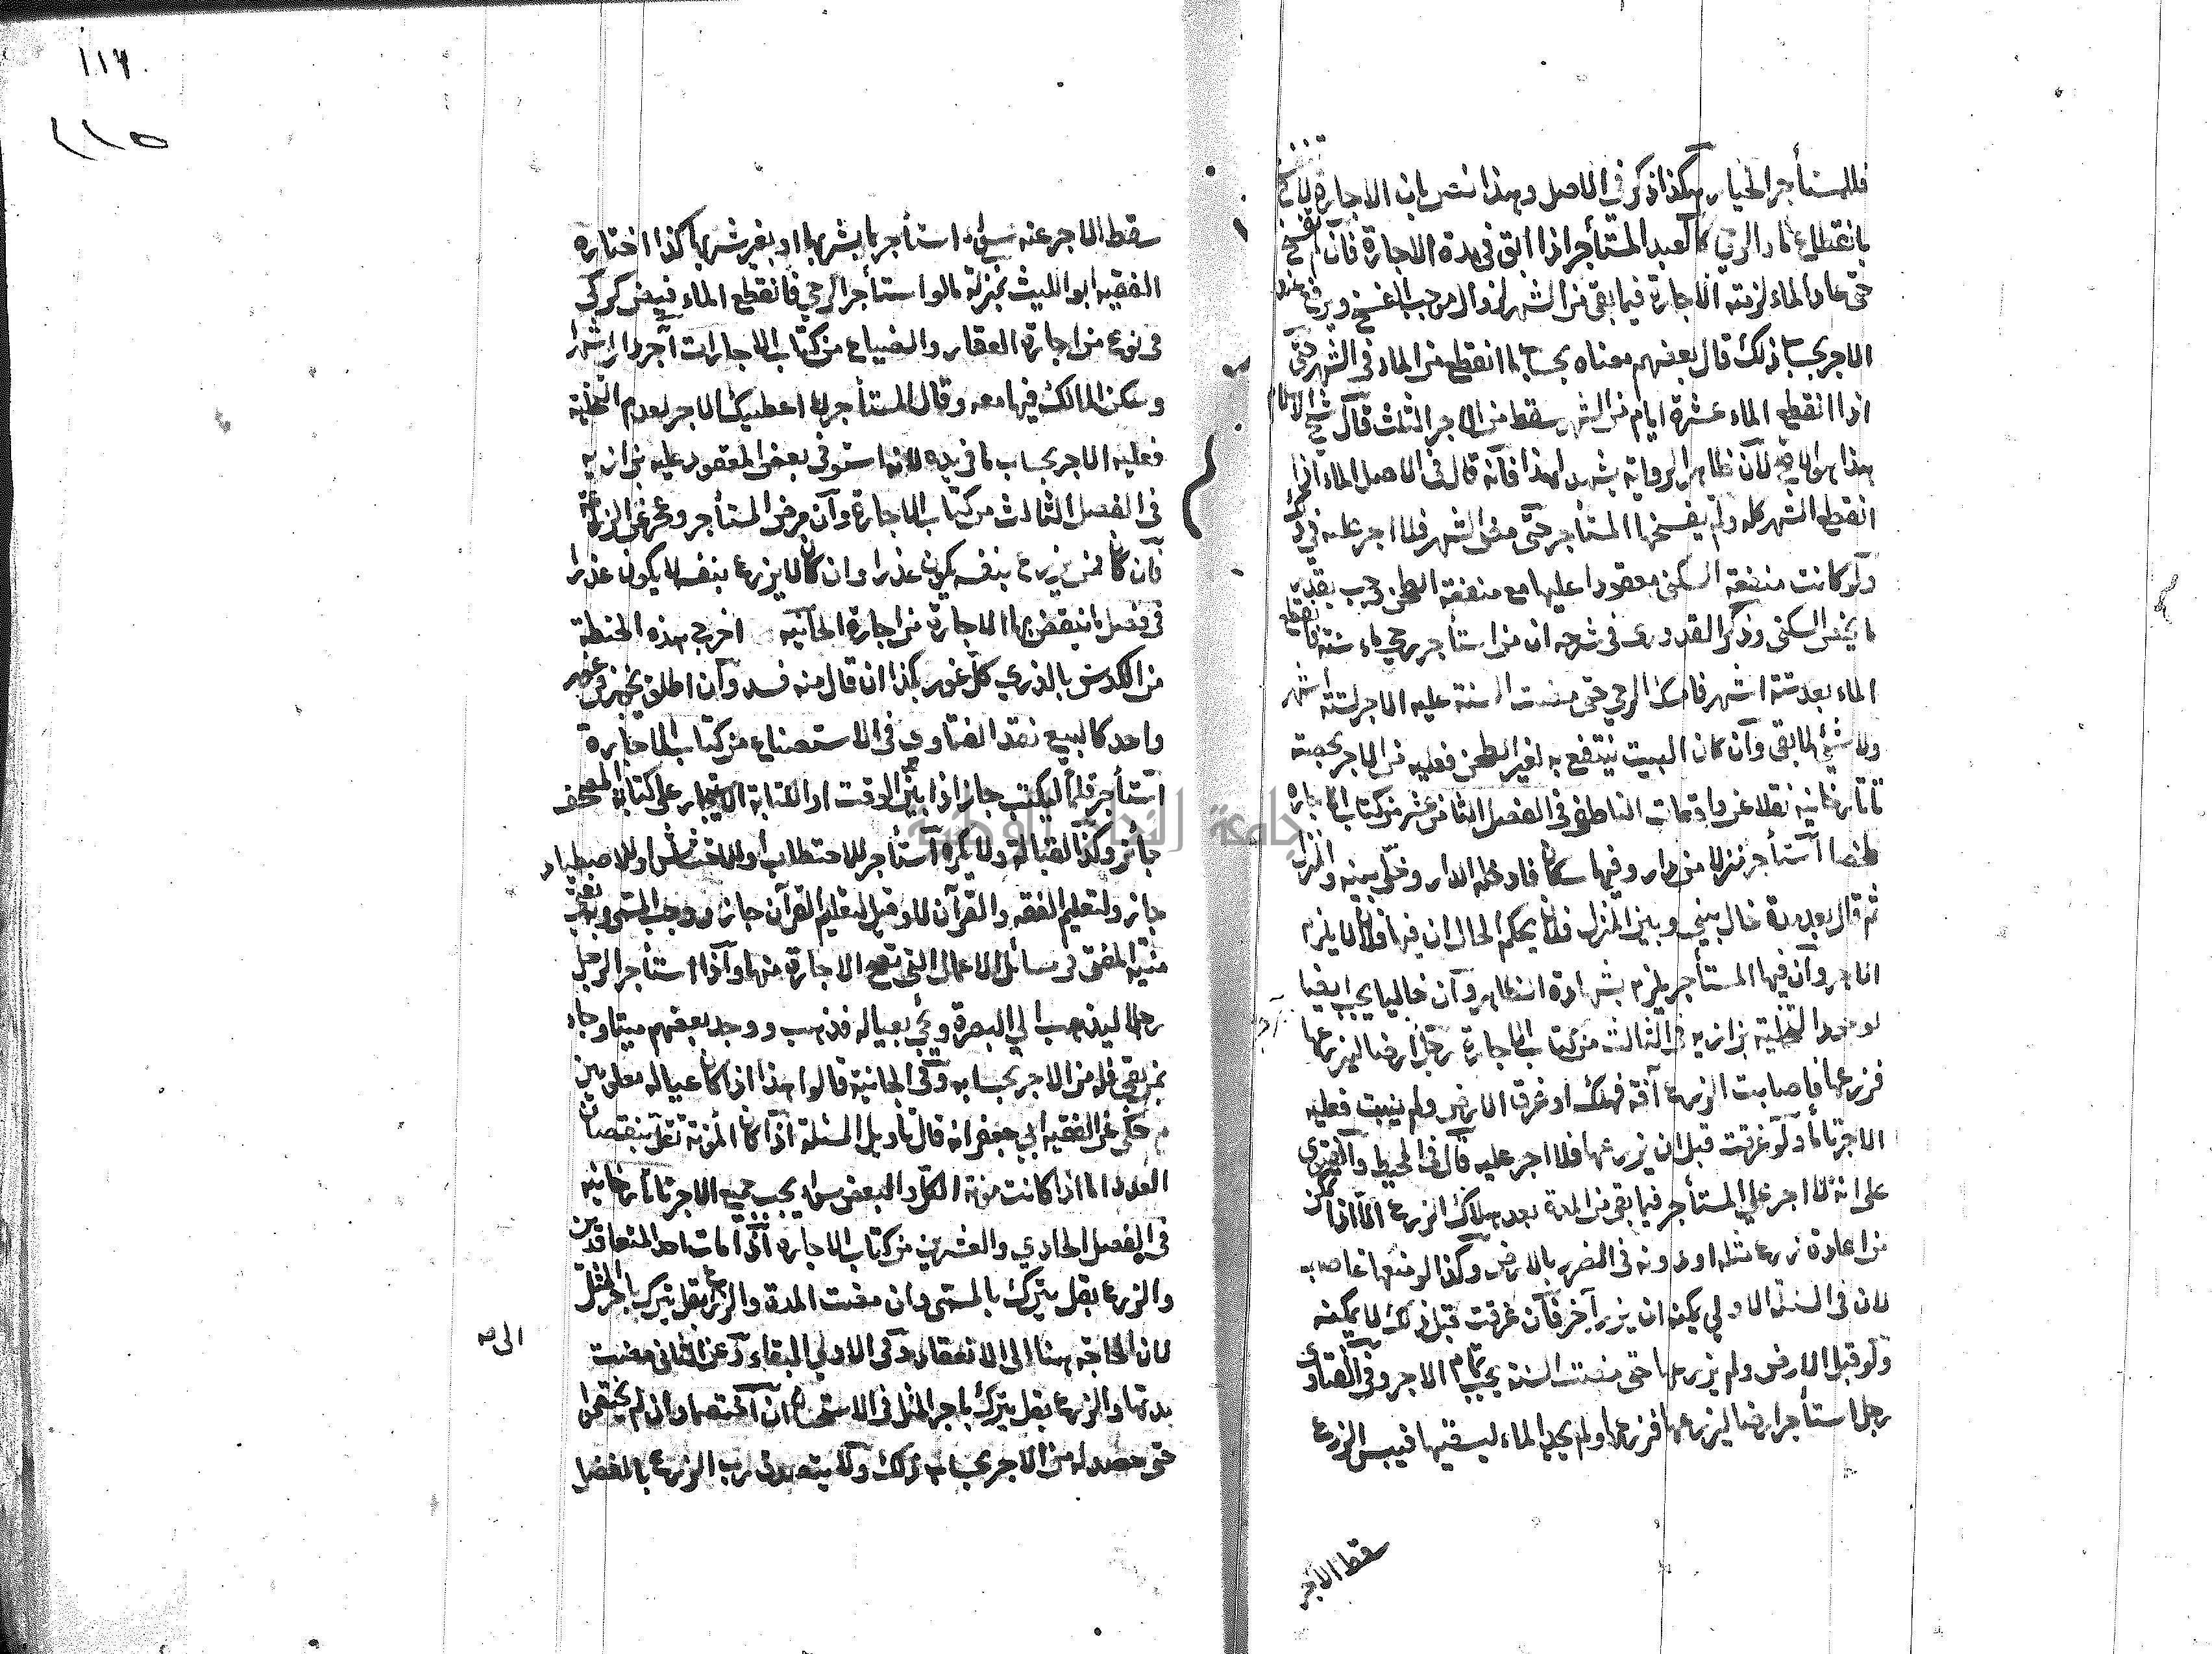 فللمستأجر الخيار هكذا ذكر في الاصل وهذا نص بان الاجارة لا تنفسخ
بانقطاع ماء الرحى كالعبد المستأجر اذا ابق في مدة الاجارة فان لم يفسخ
حتى عاد الماء لزمته الاجارة فيما بقي من الشهر لزوال موجب الفسخ ويرفع عنه
الاجر بحساب ذلك قال بعضهم معناه بحساب ما انقطع من الماء في الشهر حتى
اذا انقطع الماء عشرة ايام من الشهر سقط من الاجر الثلث قال شيخ الاسلام
هذا هو الاصح لان ظاهر الرواية يشهد لهذا فانه قال في الاصل الماء اذا
انقطع الشهر كله ولم يفسخها المستأجر حتى مضى الشهر فلا اجر عليه في ذلك
ولو كانت منفعة السكنى معقودا عليها مع منفعة الطحن يجب بقدر
ما يخص السكنى وذكر القدوري في شرحه ان من استأجر رحى ماء سنة فانقطع
الماء بعد ستة اشهر فامسك الرحى حتى مضت السنة عليه الاجر لستة اشهر
ولا شيء لما بقي وان كان البيت ينتفع به لغير الطحن فعليه من الاجر بحصته
تاتارخانيه نقلا عن واقعات الناطفي في الفصل الثاني عشر من كتاب الاجارة
ملخصا استأجر منزلا من دار وفيها سكان فادخله الدار وخلى بينه والمنزل
ثم قال بعد مدة حال بيني وبين المنزل فلان يحكم الحال ان فيها فلان لا يلزم
الاجر وان فيها المستأجر يلزم بشهادة الظاهر وان خاليا يجب ايضا
لوجود التخلية بزازيه في الثالث من كتاب الاجارة رجل ارضا ليزرعها
آجر
فزرعها فاصابت الزرع آفة فهلك او غرق الارض ولم ينبت فعليه
الاجر تاما ولو غرقت قبل ان يزرعها فلا اجر عليه قال في المحيط والفتوى
على انه لا اجر على المستأجر فيما بقي من المدة بعد هلاك الزرع الا اذا تمكن
من اعادة زرع مثله او دونه في الضرر بالارض وكذا لو منعها غاصب
لان في السنة الاولى يمكنه ان يزرع آخر فان غرقت قبل ذلك لا يمكنه
ولو قبل الارض ولم يزرعها حتى مضت السنة يجب تمام الاجر وفي الفتاوى
رجل استأجر ارضا ليزرعها فزرعها ولم يجد الماء ليسقيها فيبس الزرع
سقط الاجر
١١٦
١١٥
سقط الاجر عنه سواء استأجرها بشربها او بغير شربها كذا اختاره
الفقيه ابو الليث بمنزلة ما لو استأجر الرحى فانقطع الماء فيض كركي
في نوع من اجارة العقار والضياع من كتاب الاجارات آجر دارا شهرا
وسكن المالك فيها معه وقال المستأجر لا اعطيك الاجر لعدم التخلية
فعليه الاجر بحساب ما في يده لانه استوفى بعض المعقود عليه بزازيه
في الفصل الثالث من كتاب الاجارة وان مرض المستأجر وعجز عن الزراعة
فان كان ممن يزرع بنفسه يكون عذرا وان كان لا يزرع بنفسه لا يكون عذرا
في فصل ما ينقض به الاجارة من اجارة الخانيه اخرج هذه الحنطة
من الكدس بالذري كل غور بكذا ان قال منه فسد وان اطلق يجوز في غور
واحد كالبيع نقد الفتاوى في الاستصناع من كتاب الاجارة
استأجر قلما ليكتب جاز اذا بين الوقت او الكتابة الاستيجار على كتابة المصحف
جائز وكذا القبالة ولا يكره استأجر للاحتطاب او للاحتشاش او للاصطياد
جاز ولتعليم الفقه والقرآن لا وقيل لتعليم القرآن جاز ووجب المسمى وبه يفتى
منية المفتي في مسائل الاعمال التي تصح الاجارة منها واذا استأجر الرجل
رجلا ليذهب الى البصرة ويجيء بعياله فذهب ووجد بعضهم ميتا وجاء
بمن بقي فله من الاجر بحسابه وفي الخانية قالوا هذا اذا كان عياله معلومين
م حكي عن الفقيه ابي جعفر انه قال تأويل المسئلة اذا كان المؤنة تقل بنقصان
العدد اما اذا كانت مؤنة الكل والبعض سواء يجب جميع الاجر تاتارخانيه
في الفصل الحادي والعشرين من كتاب الاجارة اذا مات احد المتعاقدين
والزرع بقل يترك بالمسمى وان مضت المدة والزرع بقل يترك باجر المثل
لان الحاجة هنا الى الانعقاد وفي الاولى البقاء وعن الثاني مضت
مدتها والزرع بقل يترك باجر المثل في الاستحسان ان اختصما وان لم يختصما
حتى حصد له من الاجر بحساب ذلك ولا يتصدق رب الزرع بالفضل
الى
جامعة النجاح الوطنية